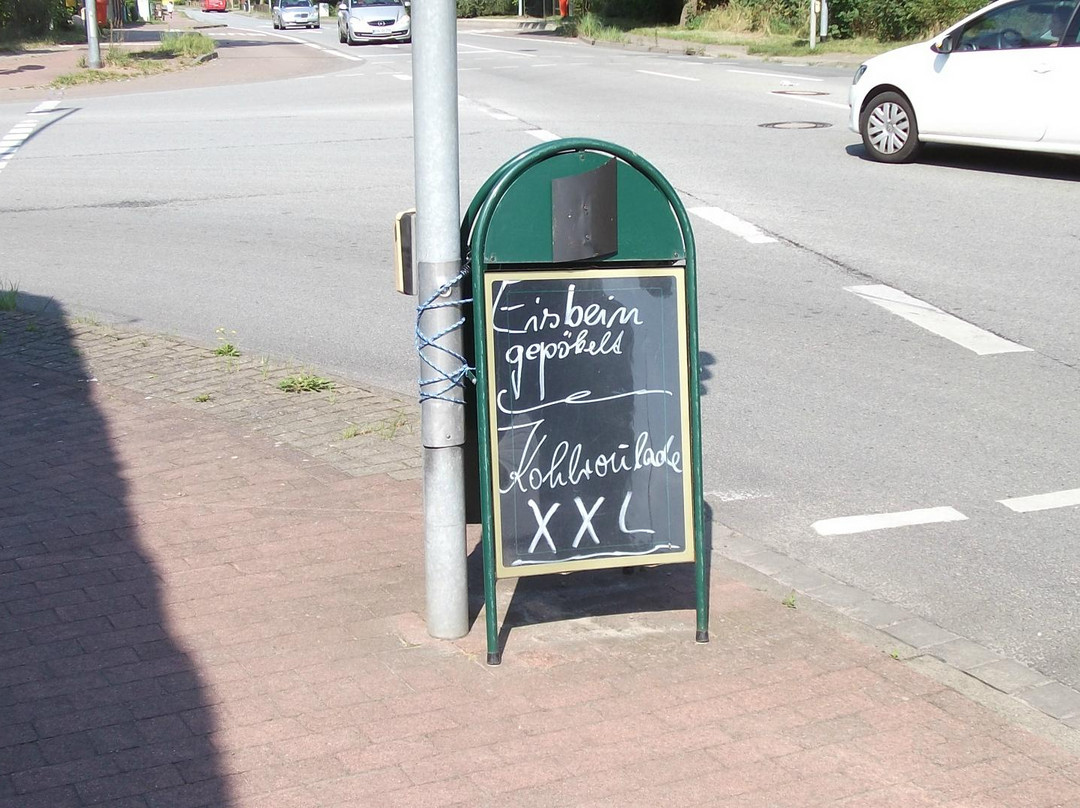 Eisbein
gepökelt
Kohlroulade
XXL